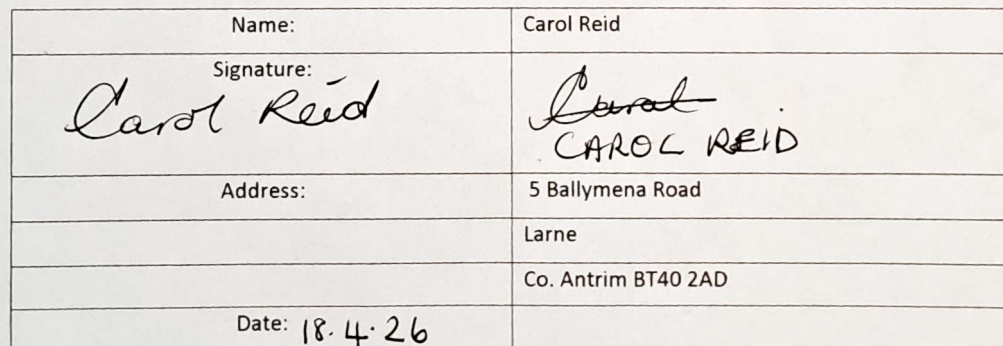 Name: Carol Reid
Signature:
Carol Reid Carol
CAROL REID
Address: 5 Ballymena Road
Larne
Co. Antrim BT40 2AD
Date: 18.4.26